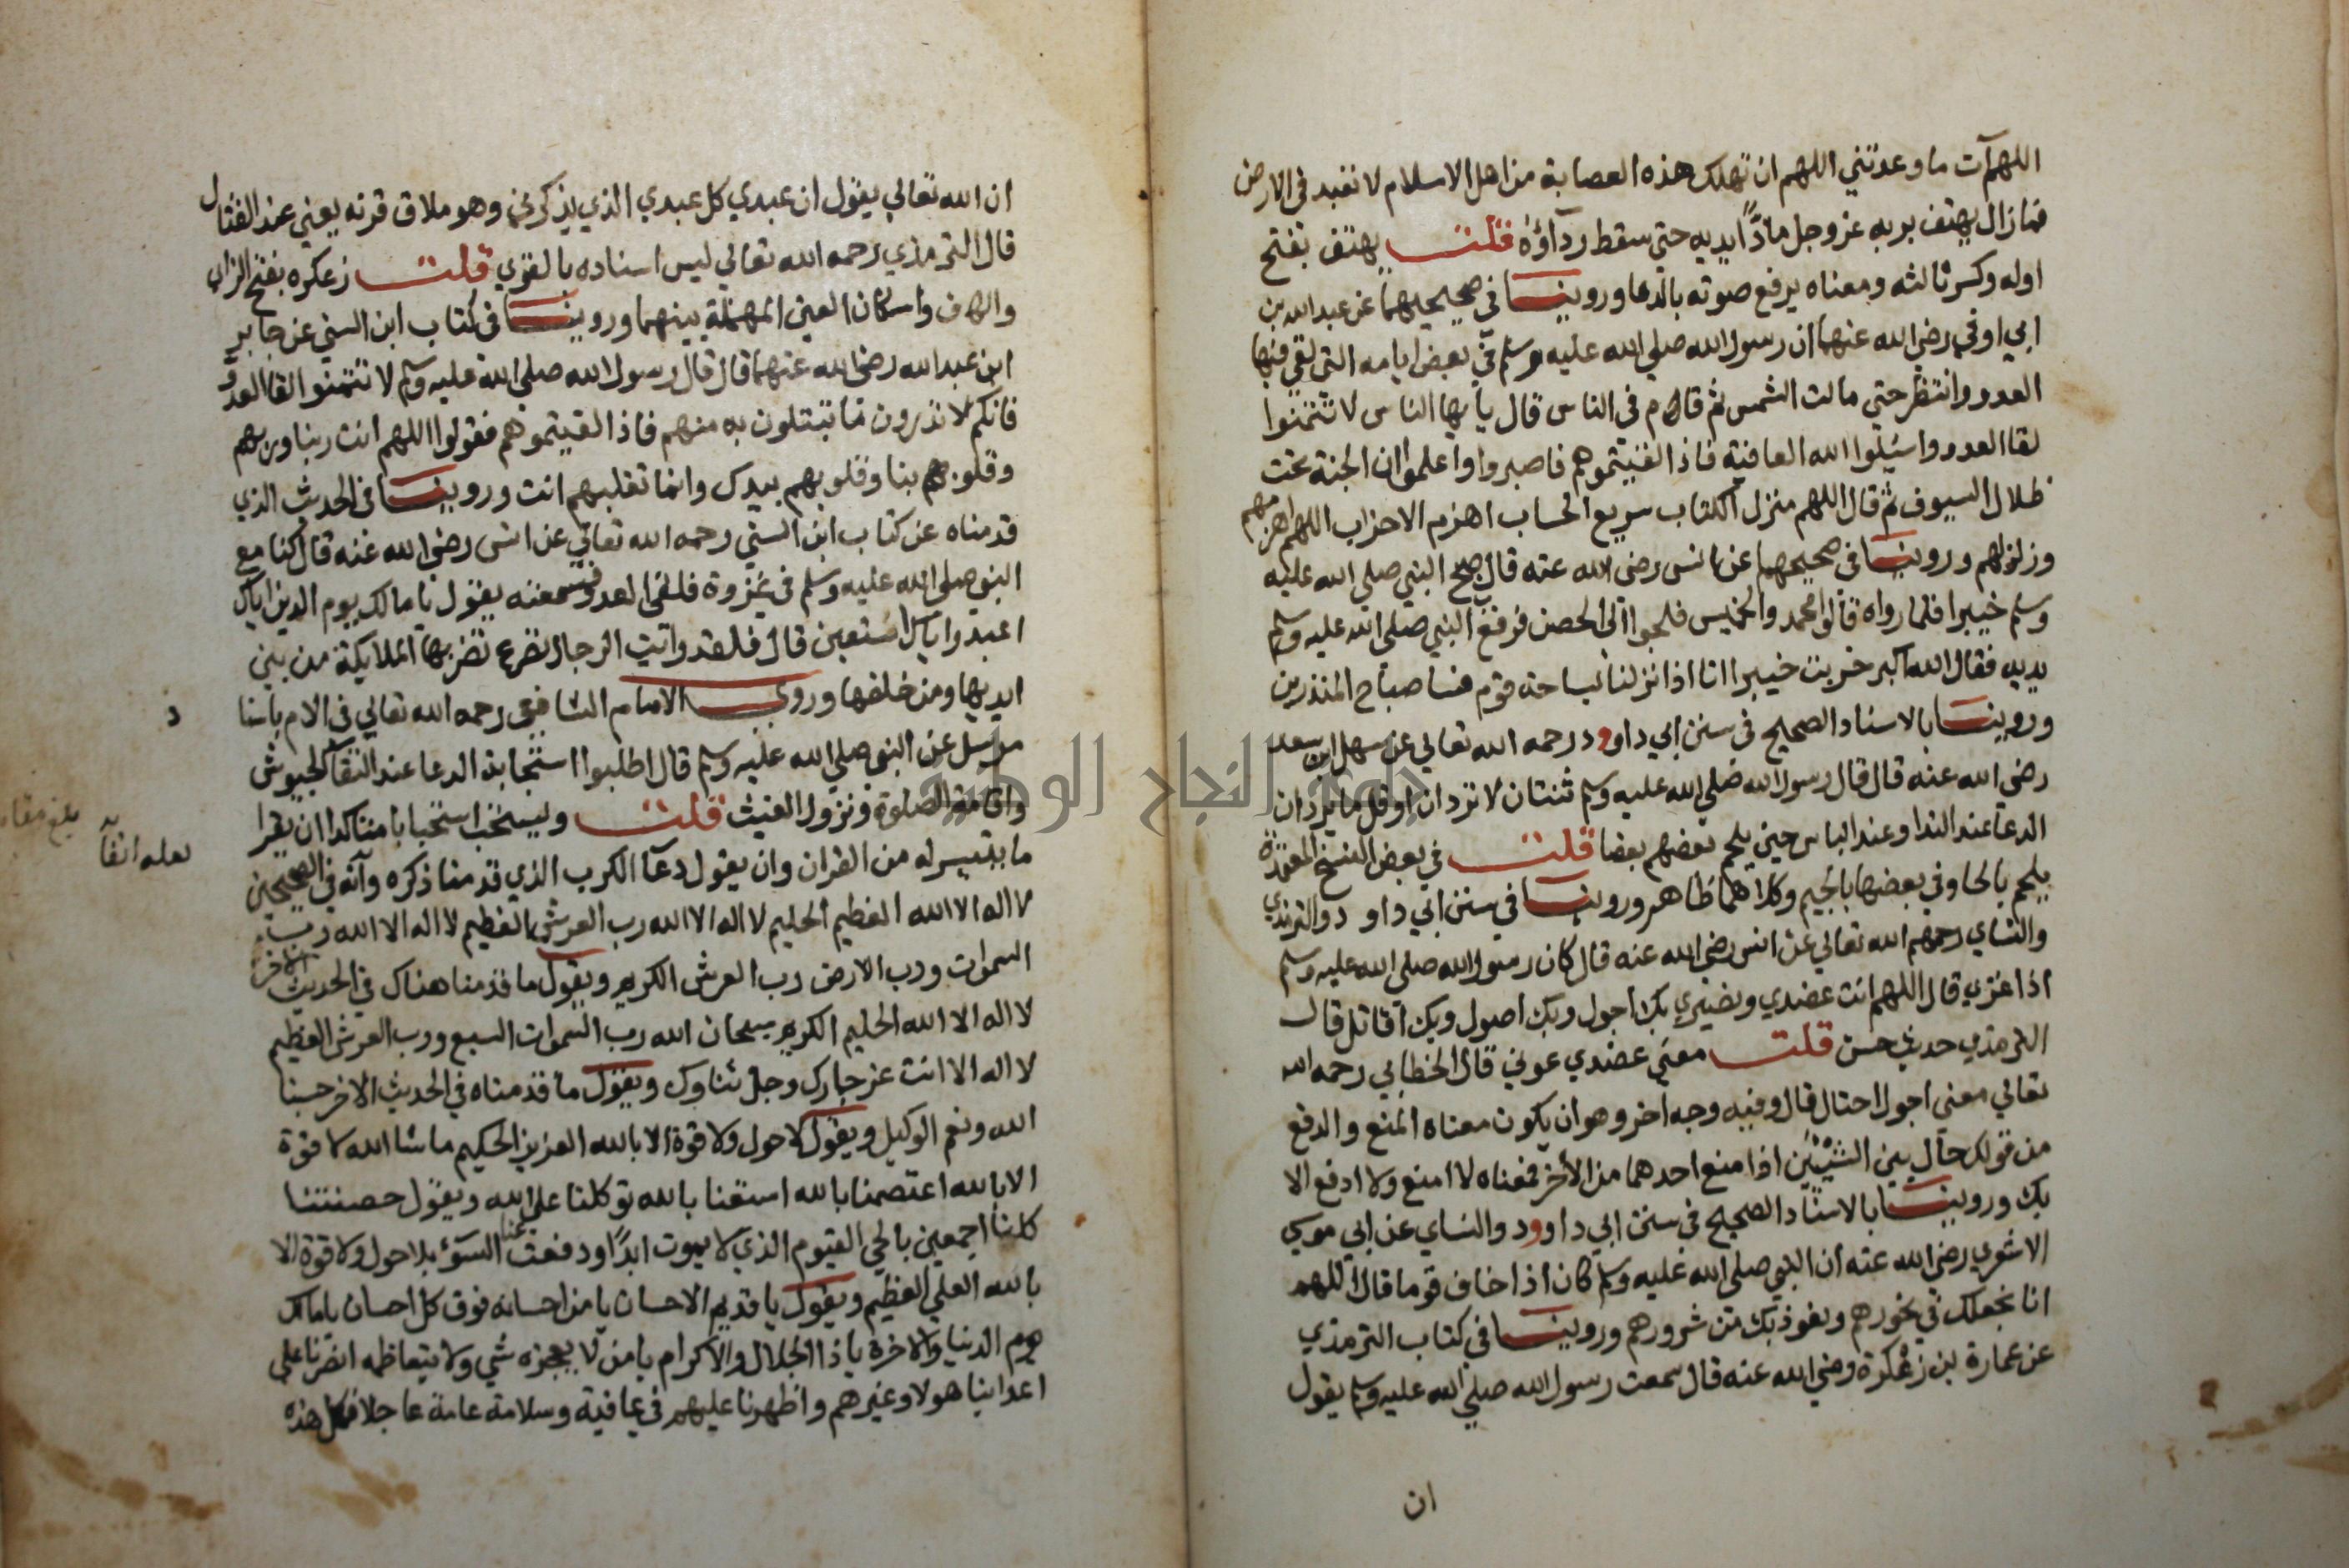 اللهم آت ما وعدتني اللهم ان تهلك هذه العصابة من اهل الاسلام لا تعبد في الارض
فما زال يهتف بربه عز وجل مادًّا يديه حتي سقط ردآؤه قلت يهتف بفتح
اوله وكسر ثالثه ومعناه يرفع صوته بالدعا وروينا في صحيحيهما عن عبد الله بن
ابي اوفي رضي الله عنهما ان رسول الله صلي الله عليه وسلم في بعض ايامه التي لقي فيها
العدو وانتظر حتي مالت الشمس ثم قام في الناس قال يايها الناس لا تتمنوا
لقا العدو واسئلوا الله العافية فاذا لقيتموهم فاصبروا واعلموا ان الجنة تحت
ظلال السيوف ثم قال اللهم منزل الكتاب سريع الحساب اهزم الاحزاب اللهم اهزمهم
وزلزلهم وروينا في صحيحهما عن انس رضي الله عنه قال صبح النبي صلي الله عليه
وسلم خيبرا فلما رواه قالوا محمد والخميس فلجوا الي الحصن فرفع النبي صلي الله عليه وسلم
يديه فقال الله اكبر خربت خيبرا انا اذا نزلنا بساحة قوم فسا صباح المنذرين
وروينا بالاسناد الصحيح في سنن ابي داوود رحمه الله تعالي عن سهل ابن سعد
رضي الله عنه قال قال رسول الله صلي الله عليه وسلم ثنتان لا تردان او قل ما يردان
الدعا عند الندا وعند الباس حين يلحم بعضهم بعضا قلت في بعض النسخ المعتمدة
يلحم بالحا وفي بعضها بالجيم وكلاهما ظاهر وروينا في سنن ابي داود والترمذي
والنساي رحمهم الله تعالي عن انس رضي الله عنه قال كان رسول الله صلي الله عليه وسلم
اذا غزي قال اللهم انت عضدي ونصيري بك اجول وبك اصول وبك اقاتل قال
الترمذي حديث حسن قلت معني عضدي عوني قال الخطابي رحمه الله
تعالي معني اجول احتال قال وفيه وجه اخر وهو ان يكون معناه المنع والدفع
من قولك حال بين الشيئين اذا منع احدهما من الاخر فمعناه لا امنع ولا ادفع الا
بك وروينا بالاسناد الصحيح في سنن ابي داوود والنساي عن ابي موسي
الاشعري رضي الله عنه ان النبي صلي الله عليه وسلم كان اذا خاف قوما قال اللهم
انا نجعلك في نحورهم ونعوذ بك من شرورهم وروينا في كتاب الترمذي
عن عمارة بن زعكرة رضي الله عنه قال سمعت رسول الله صلي الله عليه وسلم يقول
ان
ان الله تعالي يقول ان عبدي كل عبدي الذي يذكرني وهو ملاق قرنه يعني عند القتال
قال الترمذي رحمه الله تعالي ليس اسناده بالقوي قلت زعكره بفتح الزاي
والكاف واسكان العين المهملة بينهما وروينا في كتاب ابن السني عن جابر
ابن عبد الله رضي الله عنهما قال قال رسول الله صلي الله عليه وسلم لا تتمنوا لقا العدو
فانكم لا تدرون ما تبتلون به منهم فاذا لقيتموهم فقولوا اللهم انت ربنا وربهم
وقلوبنا وقلوبهم بيدك وانما تقلبهم انت وروينا في الحديث الذي
قدمناه عن كتاب ابن السني رحمه الله تعالي عن انس رضي الله عنه قال كنا مع
النبي صلي الله عليه وسلم في غزوة فلقي العدو فسمعته يقول يا مالك يوم الدين اياك
اعبد واياك استعين قال فلقد رايت الرجال تصرع تضربها الملايكة من بين
ايديها ومن خلفها وروي الامام الشافعي رحمه الله تعالي في الام باسنا
د
مرسل عن النبي صلي الله عليه وسلم قال اطلبوا استجابة الدعا عند التقا الجيوش
واقامة الصلوة ونزول الغيث قلت ويستحب استحبابا متاكدا ان يقرا
بلغ مقابلة
ما يتيسر له من القران وان يقول دعآ الكرب الذي قدمنا ذكره وآنه في الصحيحين
لعله انفاً
لا اله الا الله العظيم الحليم لا اله الا الله رب العرش العظيم لا اله الا الله رب
السموات ورب الارض رب العرش الكريم ويقول ما قدمنا هناك في الحديث الاخر
لا اله الا الله الحليم الكريم سبحان الله رب السموات السبع ورب العرش العظيم
لا اله الا انت عز جارك وجل ثناوك ويقول ما قدمناه في الحديث الاخر حسبنا
الله ونعم الوكيل ويقول لا حول ولا قوة الا بالله العزيز الحكيم ما شا الله لا قوة
الا بالله اعتصمنا بالله استعنا بالله توكلنا علي الله ويقول حصنتنا
كلنا اجمعين بالحي القيوم الذي لا يموت ابدًا ودفعت عنا السوٓء بلا حول ولا قوة الا
بالله العلي العظيم ويقول يا قديم الاحسان يا من احسانه فوق كل احسان يا مالك
يوم الدنيا والاخرة يا ذا الجلال والاكرام يا من لا يعجزه شي ولا يتعاظمه انصرنا علي
اعداينا هولا وغيرهم واظهرنا عليهم في عافية وسلامة عامة عاجلا فكل هذه
جامعة النجاح الوطنية